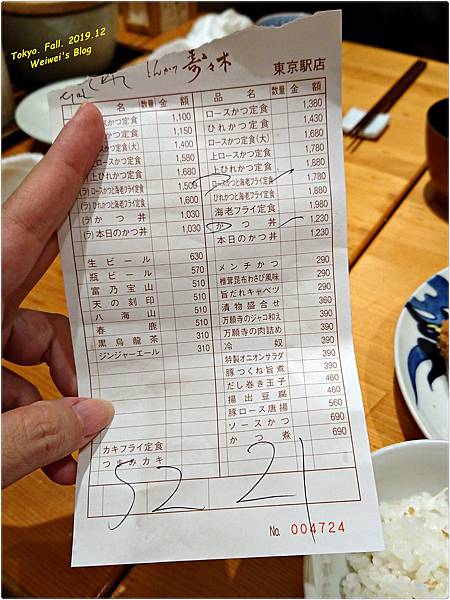 Tokyo. Fall. 2019.12
Weiwei's Blog
とんかつ 寿々木 東京駅店
名 数量 金額
ースかつ定食 1,100
かつ定食 1,150
ースかつ定食(大) 1,400
上ロースかつ定食 1,580
上ひれかつ定食 1,680
(ラ)ロースかつと海老フライ定食 1,500
(ラ)ひれかつと海老フライ定食 1,600
(ラ)かつ丼 1,030
(ラ)本日のかつ丼 1,030
生ビール 630
瓶ビール 570
富乃宝山 510
天の刻印 510
八海山 510
春鹿 510
黒烏龍茶 310
ジンジャーエール 310
カキフライ定食
つまみカキ
品名 数量 金額
ロースかつ定食 1,380
ひれかつ定食 1,430
ロースかつ定食(大) 1,680
上ロースかつ定食 1,780
上ひれかつ定食 1,880
ロースかつと海老フライ定食 1,780
ひれかつと海老フライ定食 1,880
海老フライ定食 1,980
かつ丼 1,230
本日のかつ丼 1,230
メンチかつ 290
椎茸昆布わさび風味 290
旨だれキャベツ 290
漬物盛合せ 360
万願寺のジャコ和え 390
万願寺の肉詰め 390
冷奴 390
特製オニオンサラダ 390
豚つくね旨煮 390
だし巻き玉子 460
揚出豆腐 460
豚ロース唐揚 560
ソースかつ 690
かつ煮 690
52 21
No. 004724